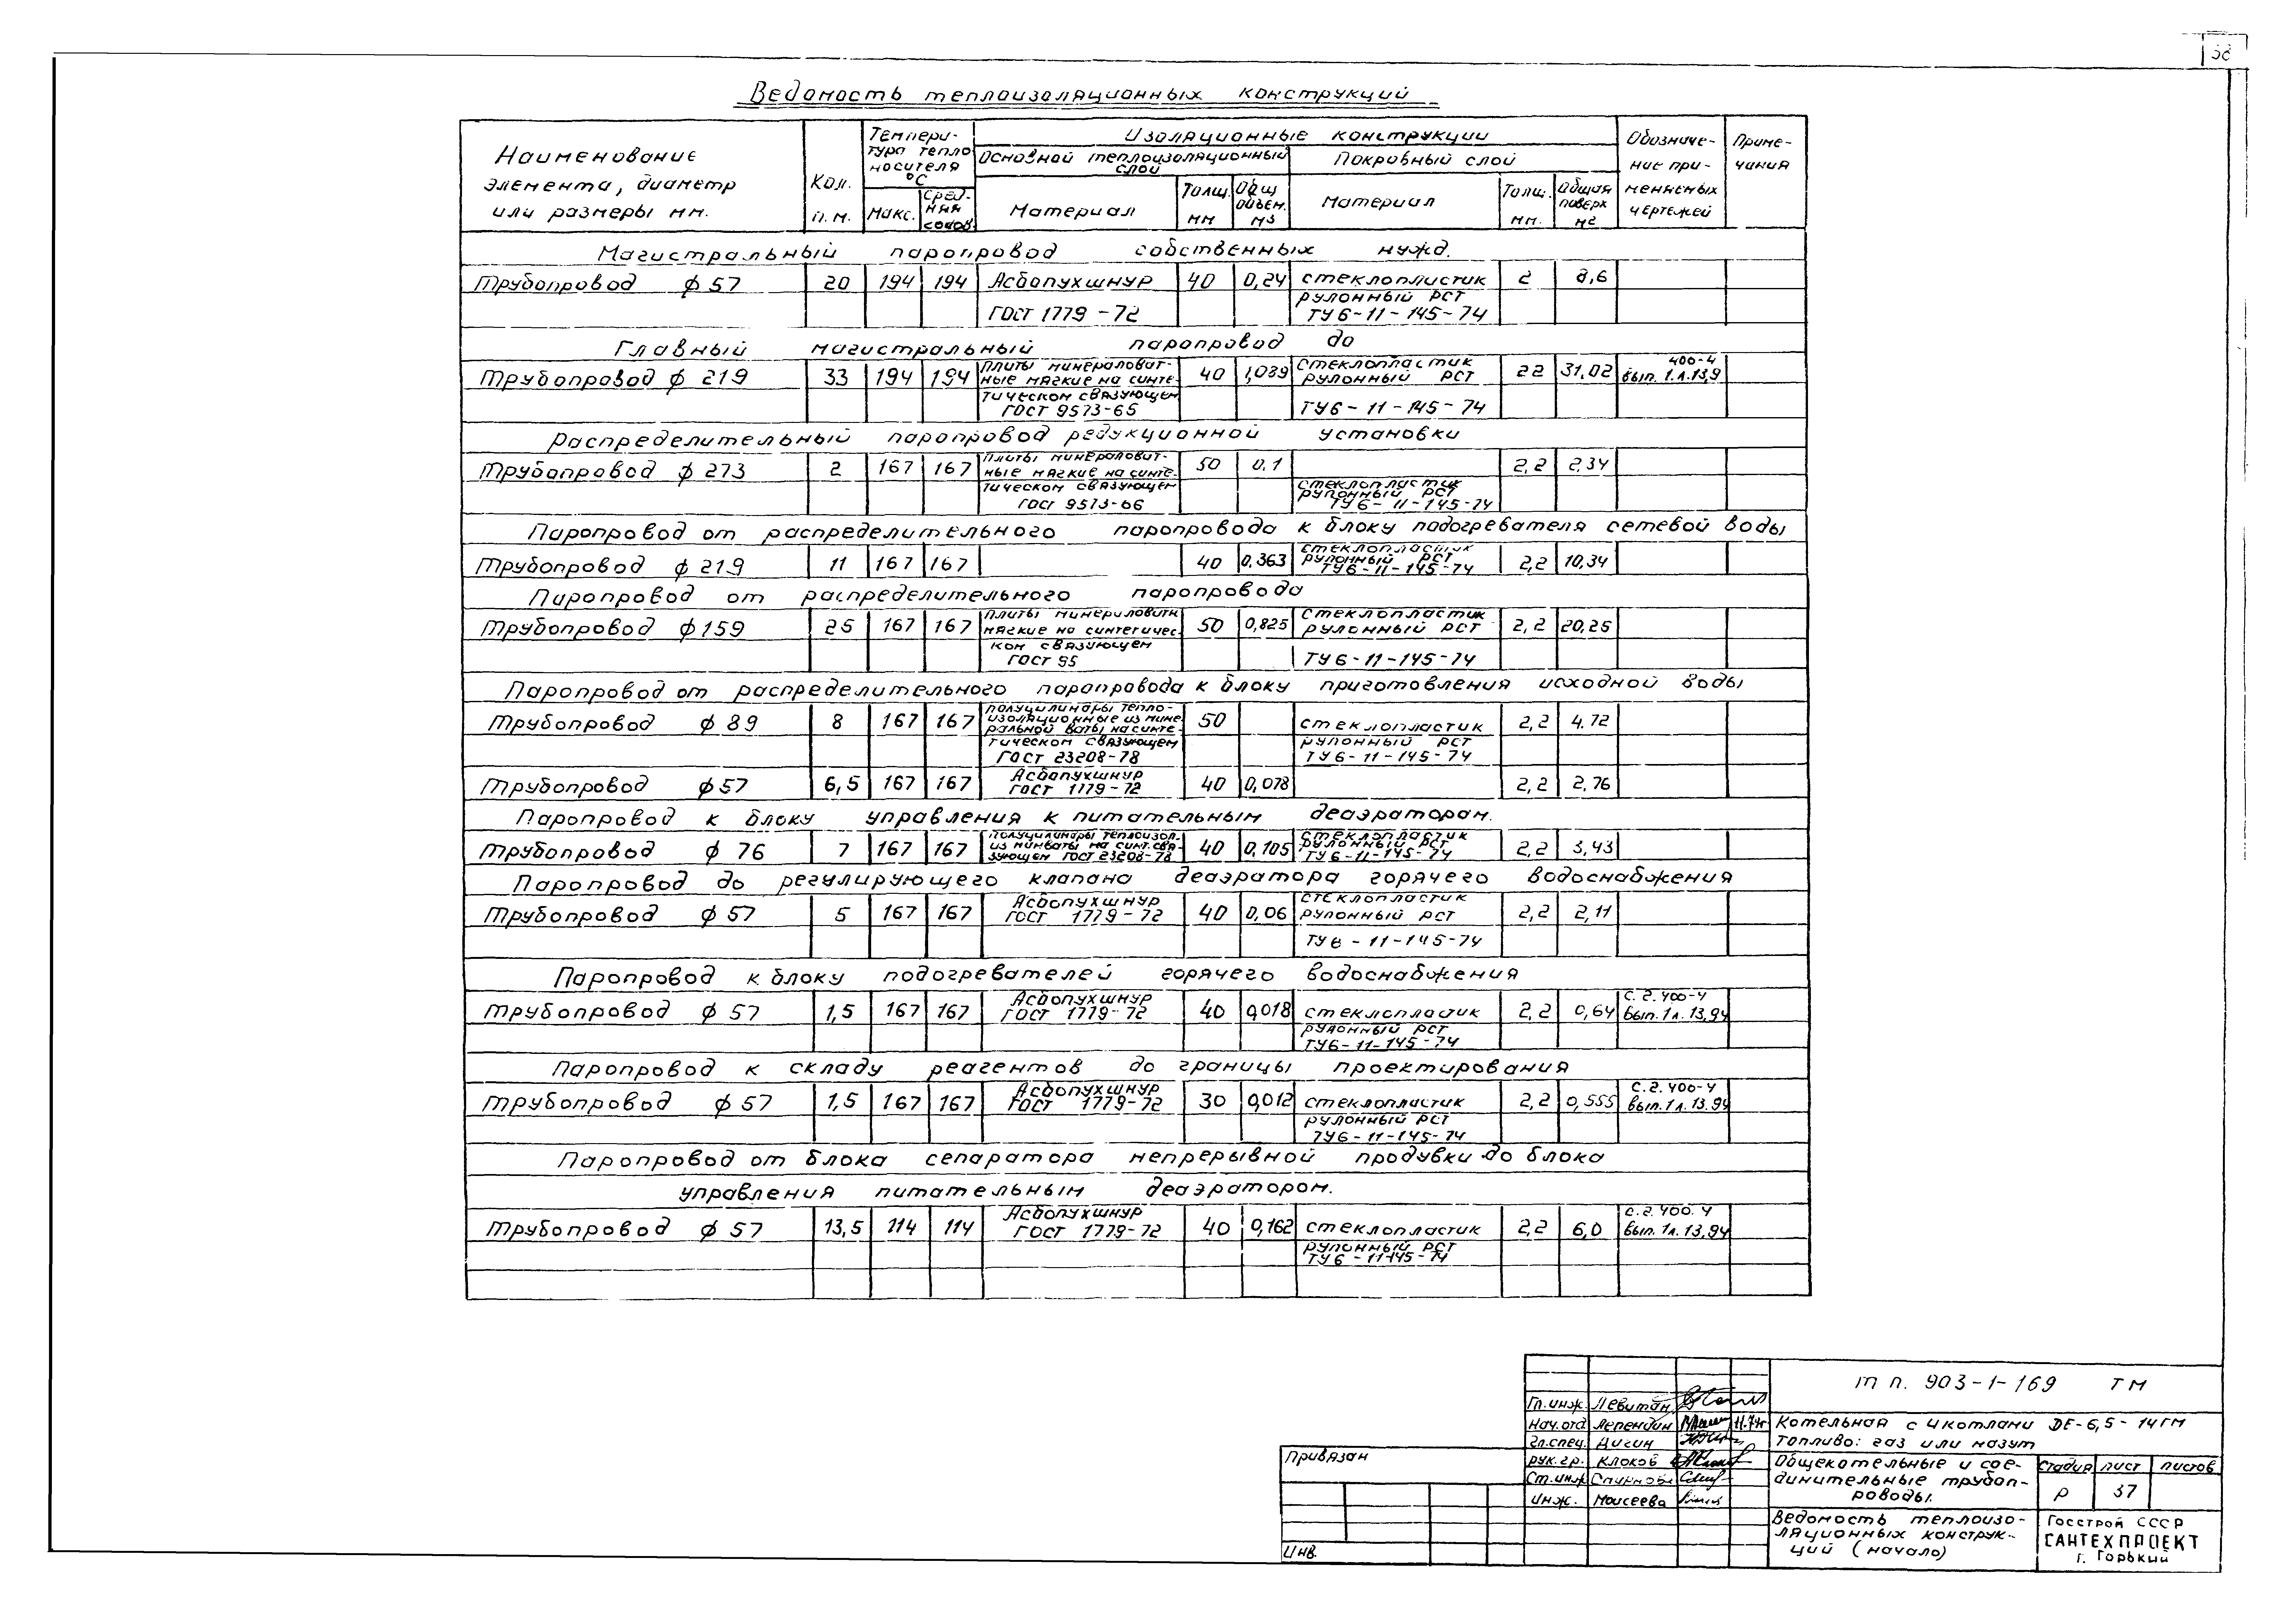 38
Ведомость теплоизоляционных конструкций
Наименование элемента, диаметр или размеры мм.
Кол. п.м.
Темпера- тура тепло носителя °С
Макс.
Сред- няя
Изоляционные конструкции
Основной теплоизоляционный слой
Покровный слой
Материал
Толщ. мм
Общ объем. м3
Материал
Толщ. мм.
Общая поверх м2
Обозначе- ние при- меняемых чертежей
Приме- чания
Магистральный паропровод собственных нужд.
Трубопровод ϕ 57 20 194 194 Асбопухшнур 40 0,24 стеклопластик 2 8,6
рулонный РСТ
ГОСТ 1779-72 ТУ6-11-145-74
Главный магистральный паропровод до
Трубопровод ϕ 219 33 194 194 Плиты минераловат- ные мягкие на синте- 40 1,089 Стеклопластик рулонный РСТ 22 31,02 400-4 вып. 1.л.13,9
тическом связующем ГОСТ 9573-65 ТУ6-11-145-74
Распределительный паропровод редукционной установки
Трубопровод ϕ 273 2 167 167 Плиты минераловат- ные мягкие на синте- 50 0,1 2,2 2,34
тическом связующем ГОСТ 9573-66 стеклопластик рулонный РСТ ТУ6-11-145-74
Паропровод от распределительного паропровода к блоку подогревателя сетевой воды
Трубопровод ϕ 219 11 167 167 40 0,363 стеклопластик рулонный РСТ ТУ6-11-145-74 2,2 10,34
Паропровод от распределительного паропровода
Трубопровод ϕ 159 25 167 167 Плиты минераловатн мягкие на синтетичес- 50 0,825 Стеклопластик рулонный РСТ 2,2 20,25
ком связующем ГОСТ 95 ТУ6-11-145-74
Паропровод от распределительного паропровода к блоку приготовления исходной воды
Трубопровод ϕ 89 8 167 167 полуцилиндры тепло- изоляционные из мине ральной ваты на синте- 50 стеклопластик 2,2 4.72
тическом связующем ГОСТ 23208-78 рулонный РСТ ТУ6-11-145-74
Трубопровод ϕ 57 6,5 167 167 Асбопухшнур ГОСТ 1779-72 40 0,078 2,2 2,76
Паропровод к блоку управления к питательным деаэратором.
Трубопровод ϕ 76 7 167 167 полуцилиндры теплоизол. из минваты на синт. свя- зующем ГОСТ 23208-78 40 0,105 стеклопластик рулонный РСТ ТУ6-11-145-74 2,2 3,43
Паропровод до регулирующего клапана деаэратора горячего водоснабжения
Трубопровод ϕ 57 5 167 167 Асбопухшнур ГОСТ 1779-72 40 0,06 стеклопластик рулонный РСТ 2,2 2,11
ТУ6-11-145-74
Паропровод к блоку подогревателей горячего водоснабжения
Трубопровод ϕ 57 1,5 167 167 Асбопухшнур ГОСТ 1779-72 40 0,018 стеклопластик 2,2 0,64 с.2.400-4 вып.1л.13,94
рулонный РСТ ТУ6-11-145-74
Паропровод к складу реагентов до границы проектирования
Трубопровод ϕ 57 1,5 167 167 Асбопухшнур ГОСТ 1779-72 30 0,012 стеклопластик 2,2 0,555 с.2.400-4 вып.1л.13.94
рулонный РСТ ТУ6-11-145-74
Паропровод от блока сепаратора непрерывной продувки до блока
управления питательным деаэратором.
Трубопровод ϕ 57 13,5 114 114 Асбопухшнур ГОСТ 1779-72 40 0,162 стеклопластик 2,2 6,0 с.2.400.4 вып.1л.13,94
рулонный РСТ ТУ6-11-145-74
т п. 903-1-169 ТМ
Гл.инж. Левитан
Нач.отд 11.74г
Гл.спец. Дигин
рук.гр. Клоков
Ст.инж Смирнова
Инж. Моисеева
Котельная с 4 котлами ДЕ-6,5-14ГМ
Топливо: газ или мазут
Общекотельные и сое- динительные трубоп- роводы.
стадия лист листов
р 37
Ведомость теплоизо- ляционных конструк- ций (начало)
Госстрой СССР
САНТЕХПРОЕКТ
г. Горький
Привязан
Инв.